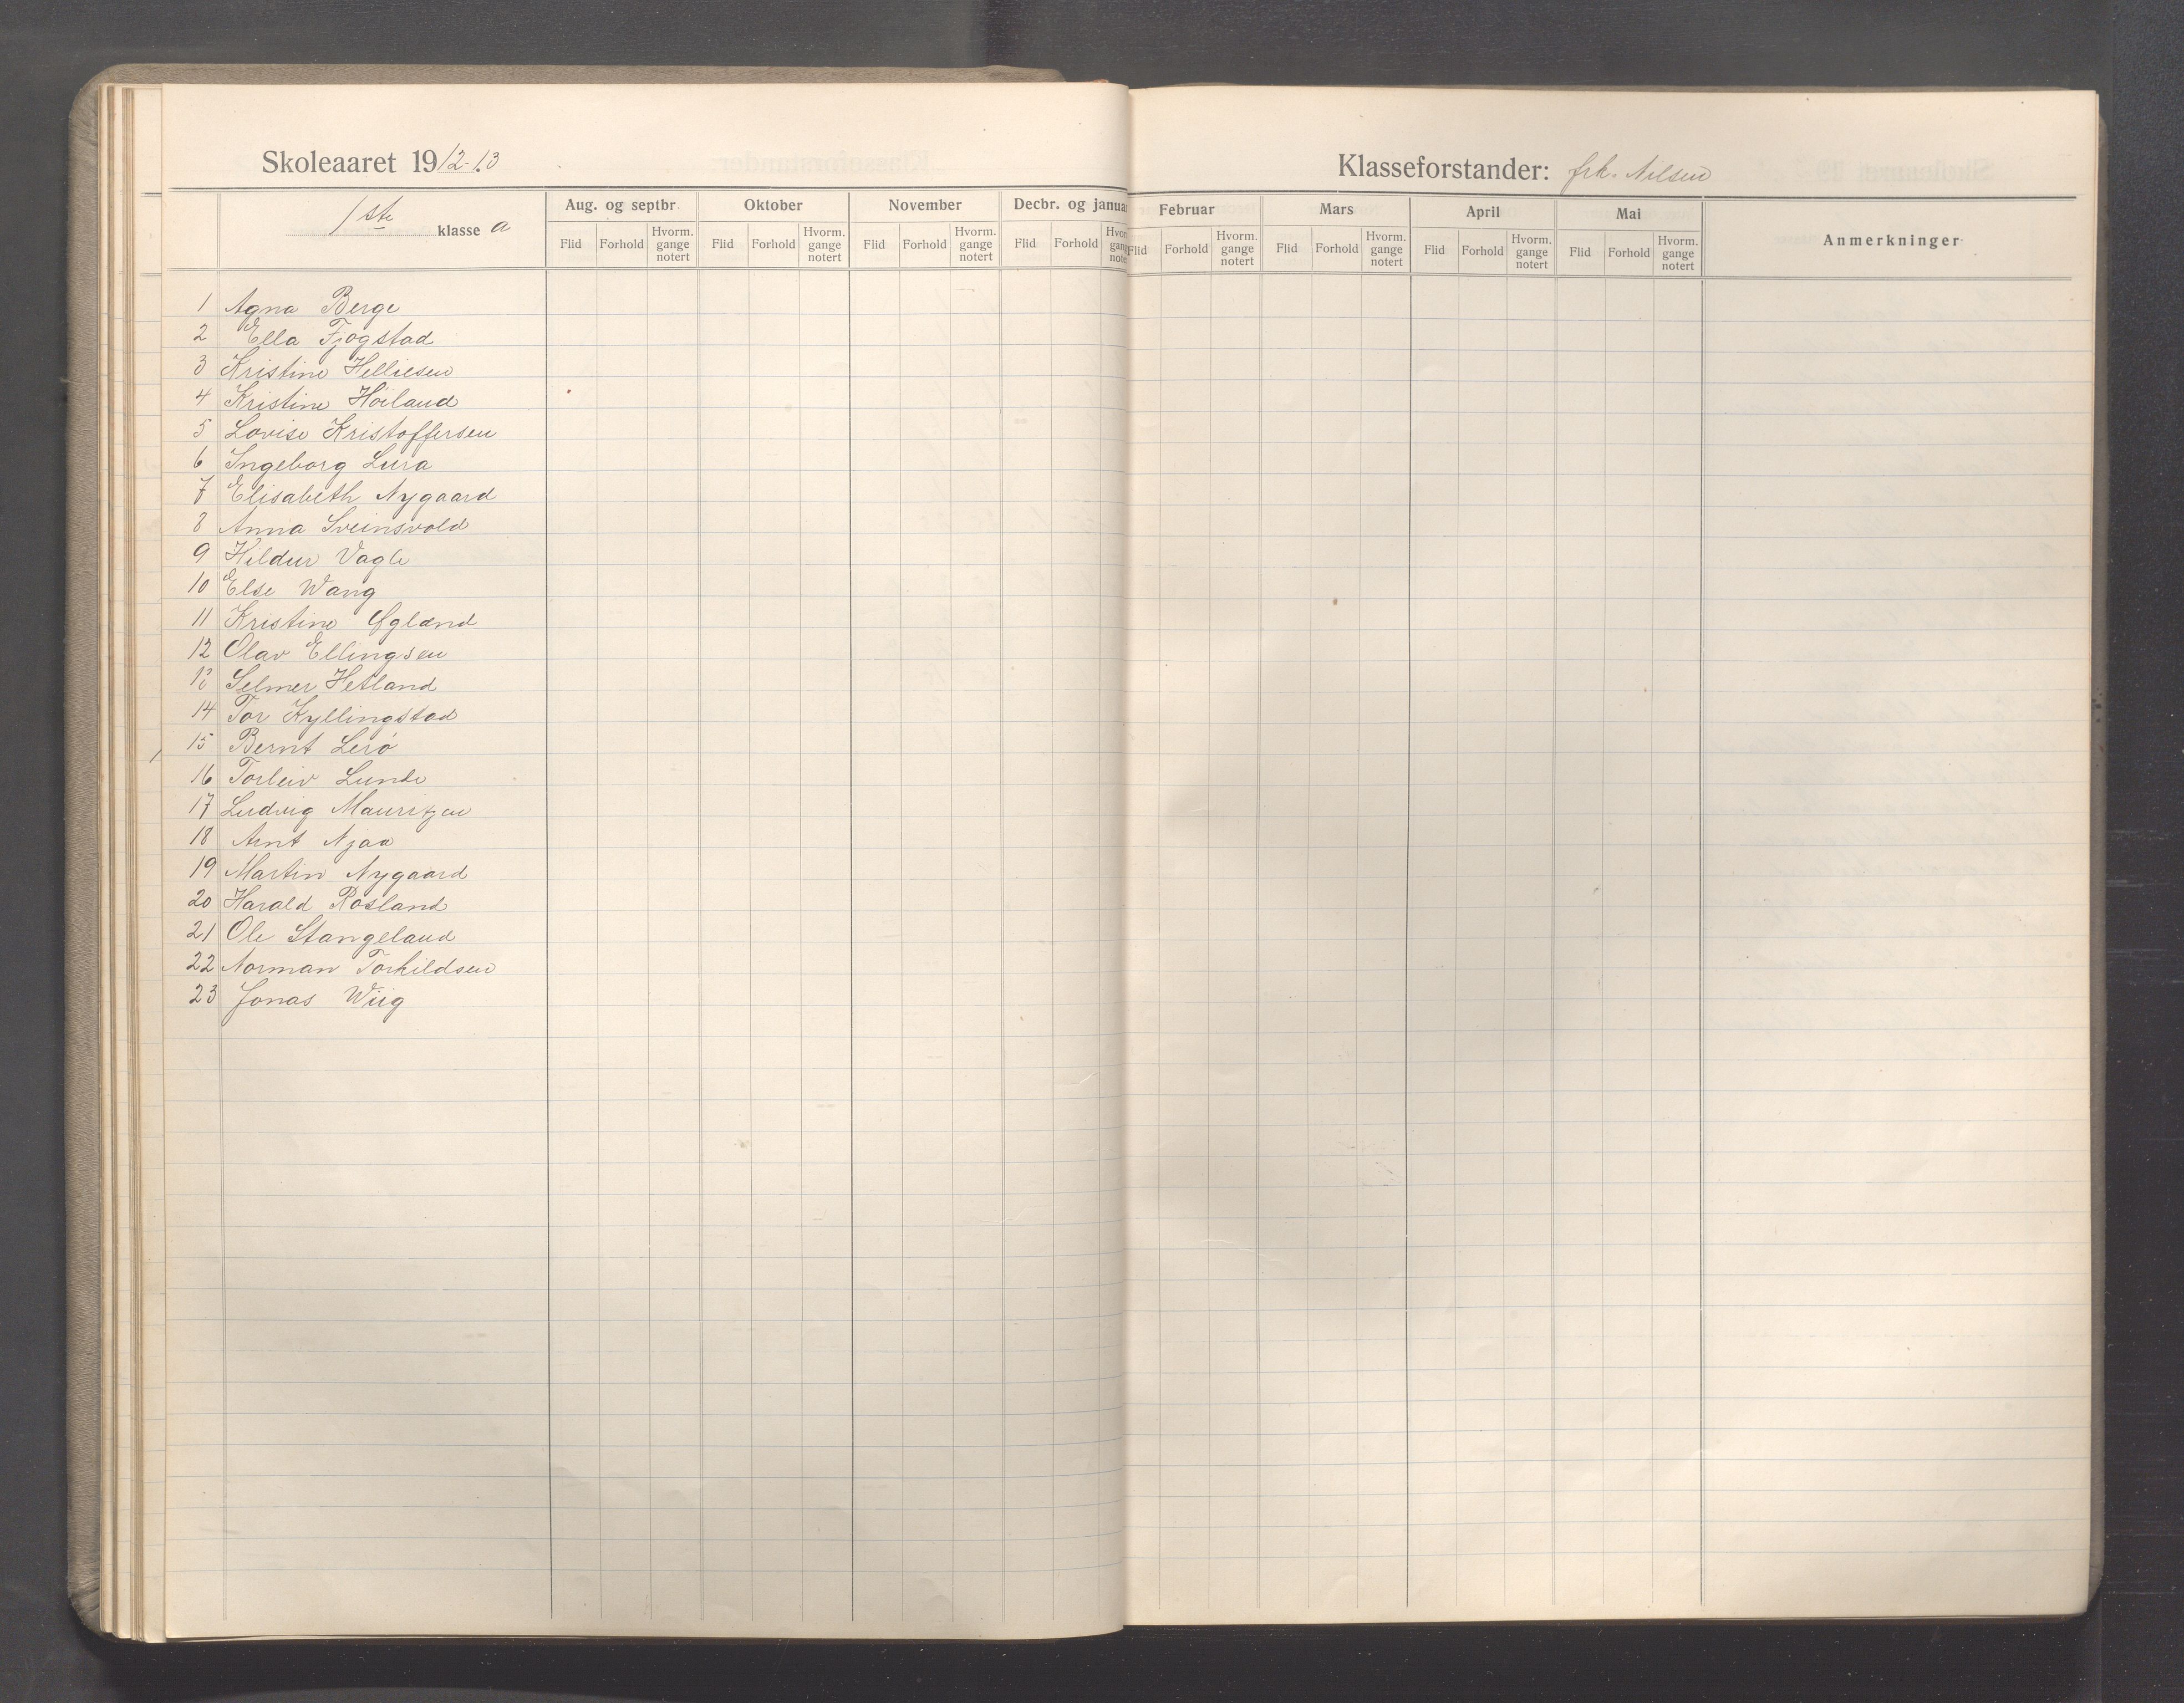 Skoleaaret 1912-13
Klasseforstander: frk. Nilsen
1ste klasse a
Aug. og septbr. Oktober November Decbr. og januar
Flid Forhold Hvorm. gange notert Flid Forhold Hvorm. gange notert Flid Forhold Hvorm. gange notert Flid Forhold Hvorm. gange notert
Februar Mars April Mai Anmerkninger
Flid Forhold Hvorm. gange notert Flid Forhold Hvorm. gange notert Flid Forhold Hvorm. gange notert Flid Forhold Hvorm. gange notert
1 Agna Berge
2 Ella Fjogstad
3 Kristine Helliesen
4 Kristine Høiland
5 Lovise Kristoffersen
6 Ingeborg Lura
7 Elisabeth Nygaard
8 Anna Sveinsvold
9 Hildur Vagle
10 Else Wang
11 Kristine Øgland
12 Olav Ellingsen
13 Selmer Hetland
14 Tor Kyllingstad
15 Bernt Lerø
16 Torleiv Lunde
17 Ludvig Mauritzen
18 Arnt Njaa
19 Martin Nygaard
20 Harald Rosland
21 Ole Stangeland
22 Norman Torkildsen
23 Jonas Wiig